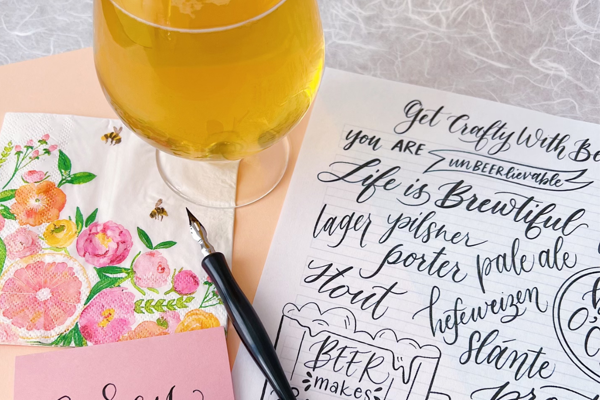 Get Crafty With Be
you ARE unBEERlievable
Life is Brewtiful
lager pilsner
porter pale ale
Stout
hefeweizen
Slánte
BEER
makes